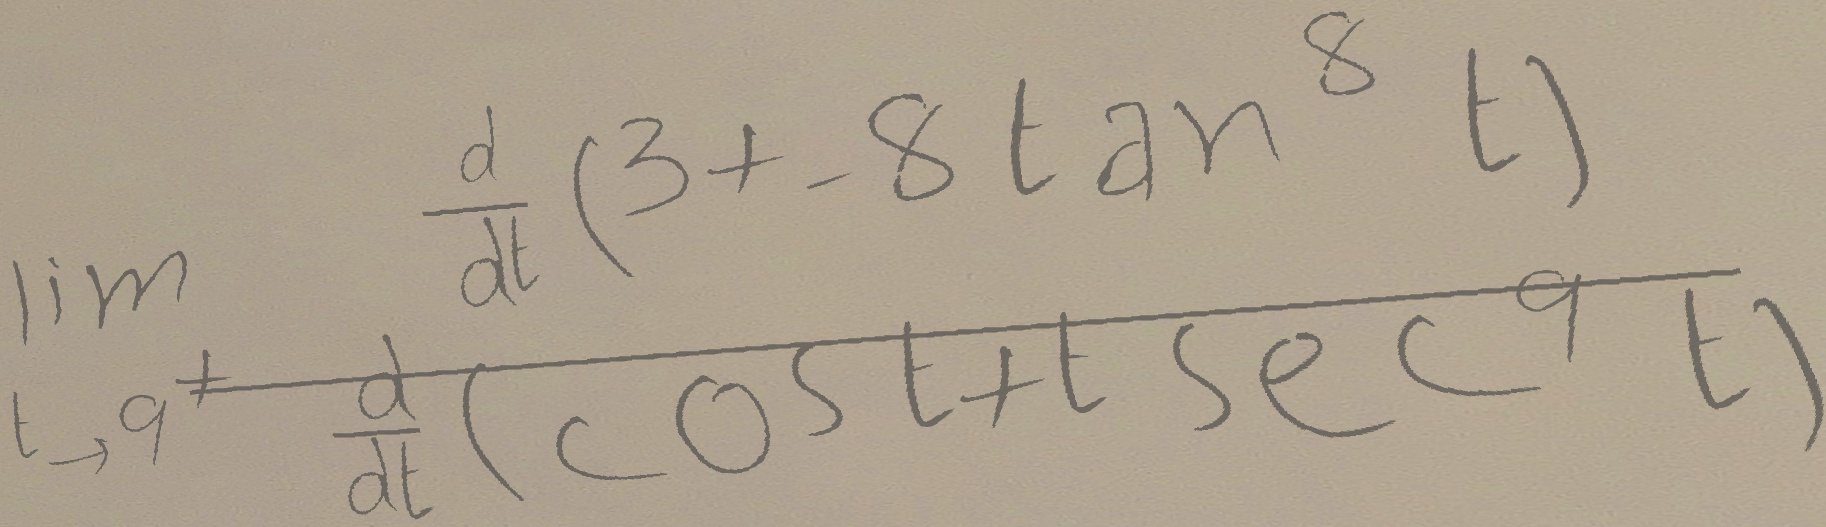 \lim_{t \to 9^+} \frac{\frac{d}{dt}(3+-8\tan^8 t)}{\frac{d}{dt}(\cos t+t\sec^9 t)}